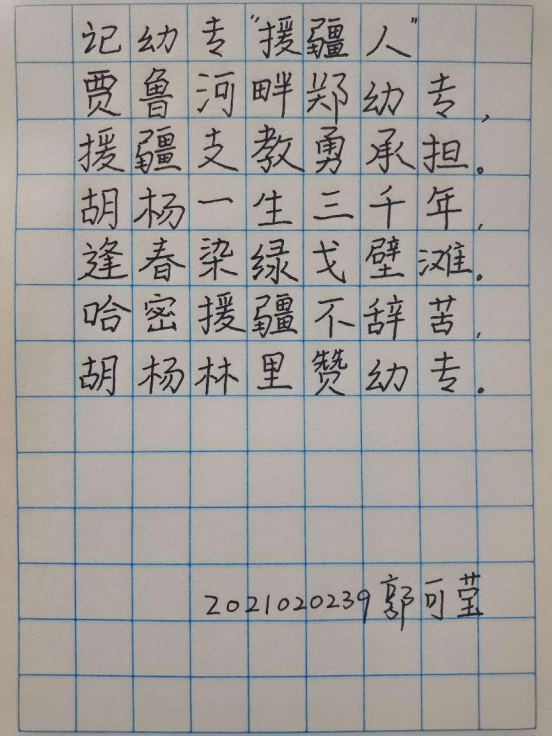 记幼专“援疆人”
贾鲁河畔郑幼专,
援疆支教勇承担。
胡杨一生三千年,
逢春染绿戈壁滩.
哈密援疆不辞苦,
胡杨林里赞幼专.
2021020239郭可莹